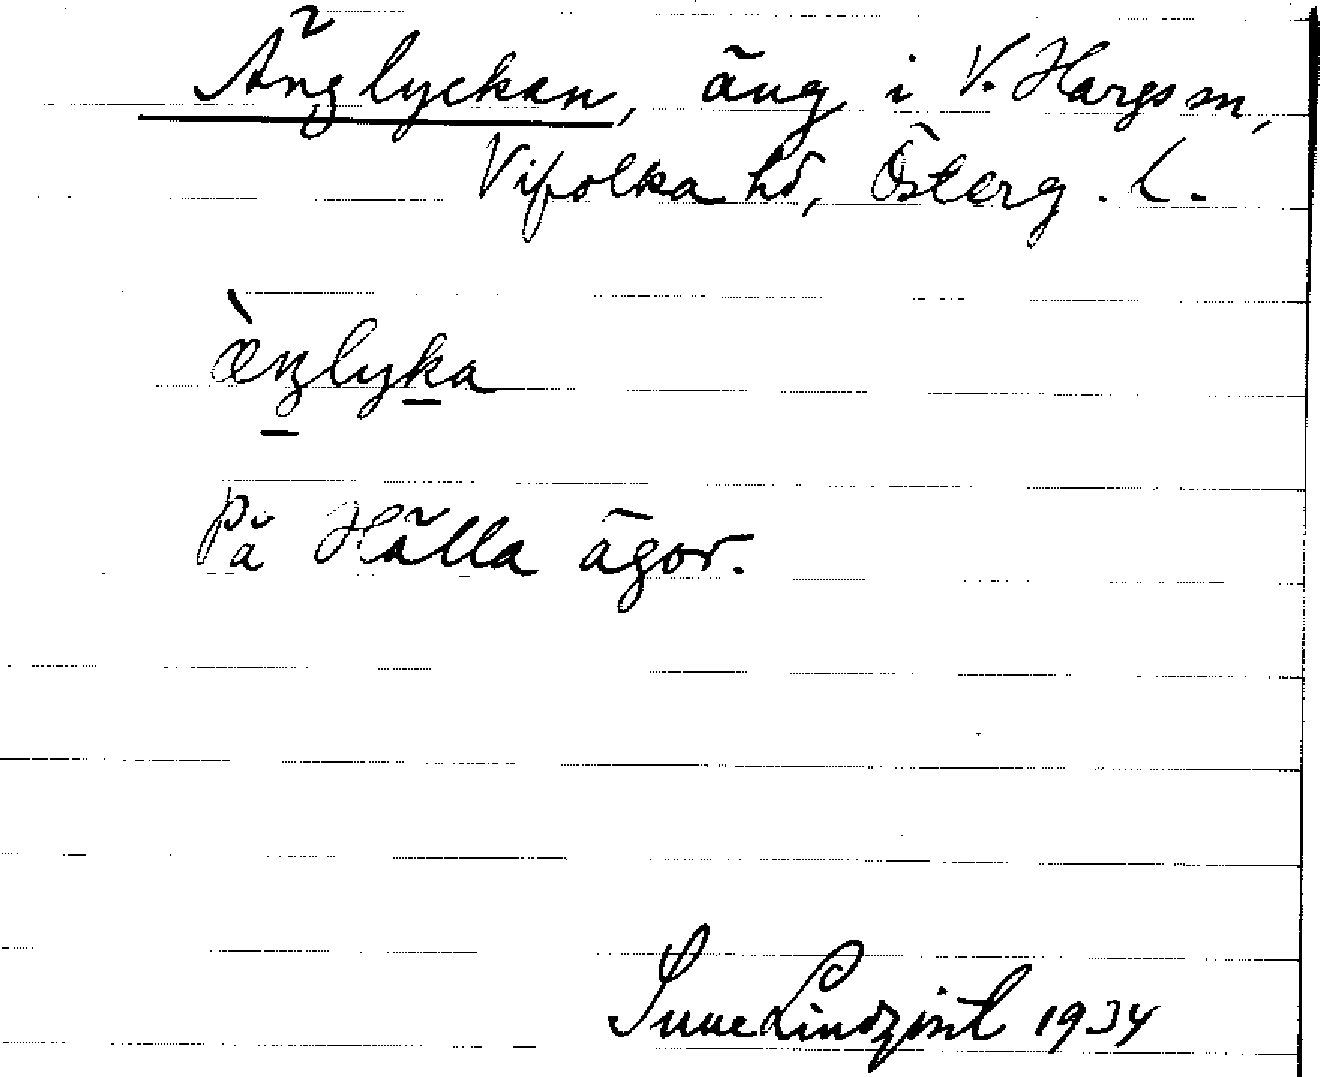 Änglyckan, äng i V. Hargs sn,
Vifolka hd, Österg. L.
æ̀ŋlyka
På Hälla ägor.
Sune Lindqvist 1934